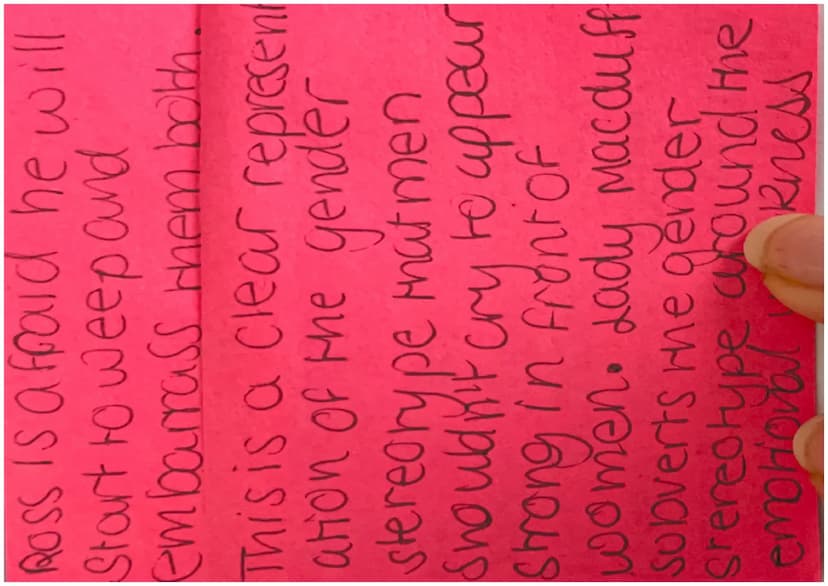 Ross is afraid he will
start to weep and
embarrass them both.
This is a clear represent
ation of the gender
stereotype that men
shouldn't cry to appear
strong in front of
women. Lady Macduff
subverts the gender
stereotype around the
emotional